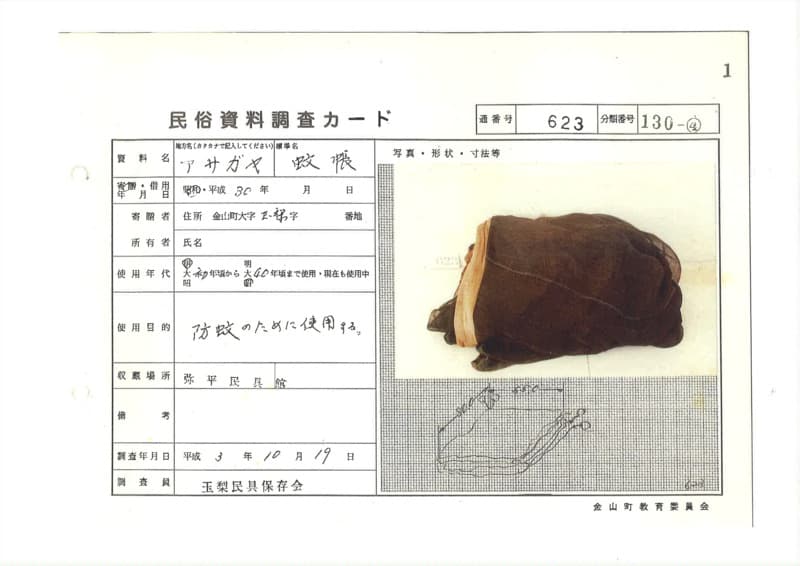 1
民俗資料調査カード
通番号 623 分類番号 130-④
資料名 地方名(カタカナで記入してください) 標準名
アサガヤ 蚊帳
写真・形状・寸法等
寄贈・借用年月日 昭和・平成 30年 月 日
寄贈者 住所 金山町大字玉梨字 番地
所有者 氏名
使用年代 明大昭 初年頃から 明大昭 40年頃まで使用・現在も使用中
使用目的 防蚊のために使用する。
収蔵場所 弥平民具館
備考
調査年月日 平成 3年 10月 19日
調査員 玉梨民具保存会
623
金山町教育委員会